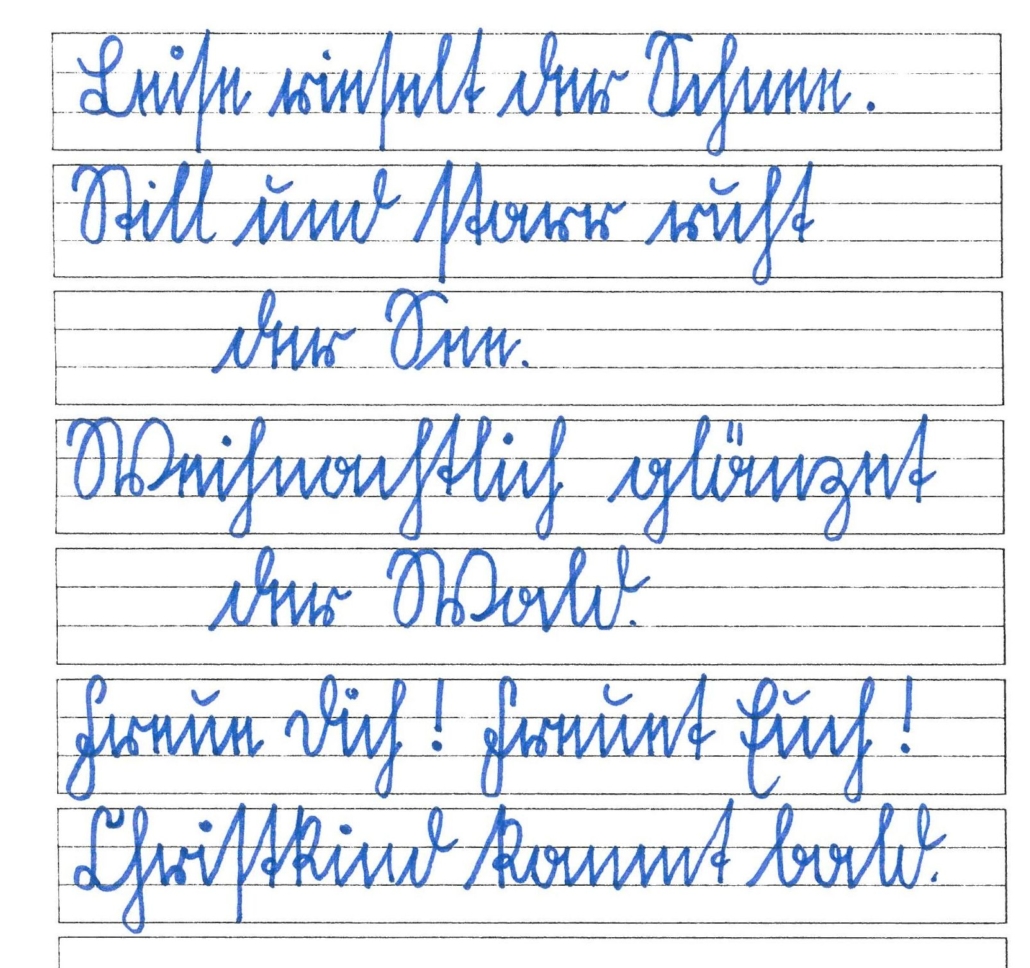 Leise rieselt der Schnee.
Still und starr ruht
der See.
Weihnachtlich glänzet
der Wald.
Freue Dich! Freuet Euch!
Christkind kommt bald.